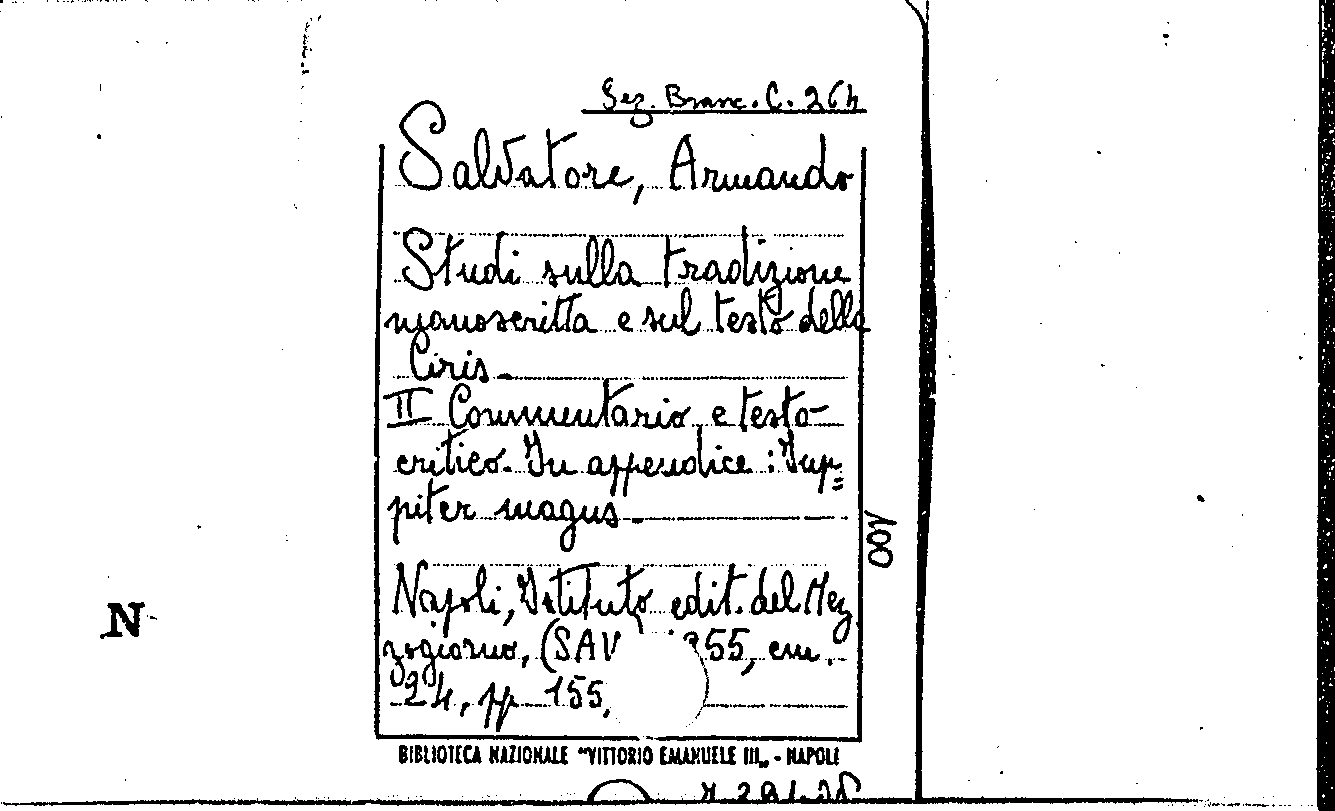 Sez. Branc. C. 264
Salvatore, Armando
Studi sulla tradizione
manoscritta e sul testo della
Ciris.
II Commentario e testo
critico. In appendice: Jup=
piter magus.
100
Napoli, Istituto edit. del Mez
zogiorno, (SAV 955, cm.
24, pp 155,
N
BIBLIOTECA NAZIONALE "VITTORIO EMANUELE III„ - NAPOLI